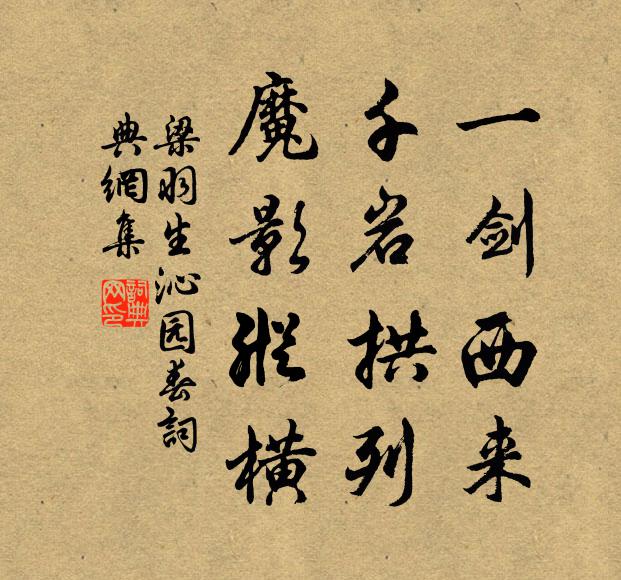 一剑西来
千岩拱列
魔影縱横
梁羽生沁园春詞
典網集
詞典
网印